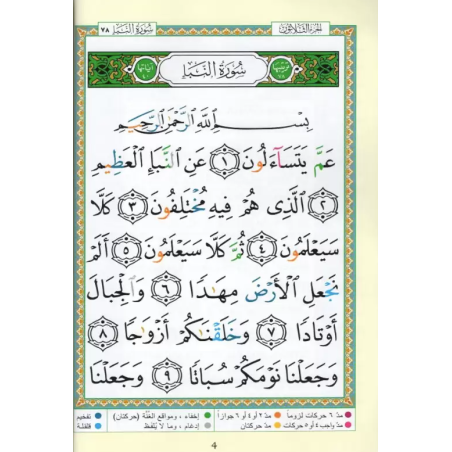 الجزء الثلاثون
سورة النبإ ٧٨
سُورَةُ النَّبَإِ
بِسْمِ ٱللَّهِ ٱلرَّحْمَٰنِ ٱلرَّحِيمِ
عَمَّ يَتَسَآءَلُونَ ١ عَنِ ٱلنَّبَإِ ٱلْعَظِيمِ
٢ ٱلَّذِى هُمْ فِيهِ مُخْتَلِفُونَ ٣ كَلَّا
سَيَعْلَمُونَ ٤ ثُمَّ كَلَّا سَيَعْلَمُونَ ٥ أَلَمْ
نَجْعَلِ ٱلْأَرْضَ مِهَٰدًا ٦ وَٱلْجِبَالَ
أَوْتَادًا ٧ وَخَلَقْنَٰكُمْ أَزْوَٰجًا ٨
وَجَعَلْنَا نَوْمَكُمْ سُبَاتًا ٩ وَجَعَلْنَا
مدّ ٦ حركات لزوماً مدّ ٢ أو ٤ أو ٦ جوازاً إخفاء، ومواقع الغُنَّة (حركتان) تفخيم
مدّ واجب ٤ أو ٥ حركات مدّ حركتان إدغام، وما لا يُلفظ قلقلة
4